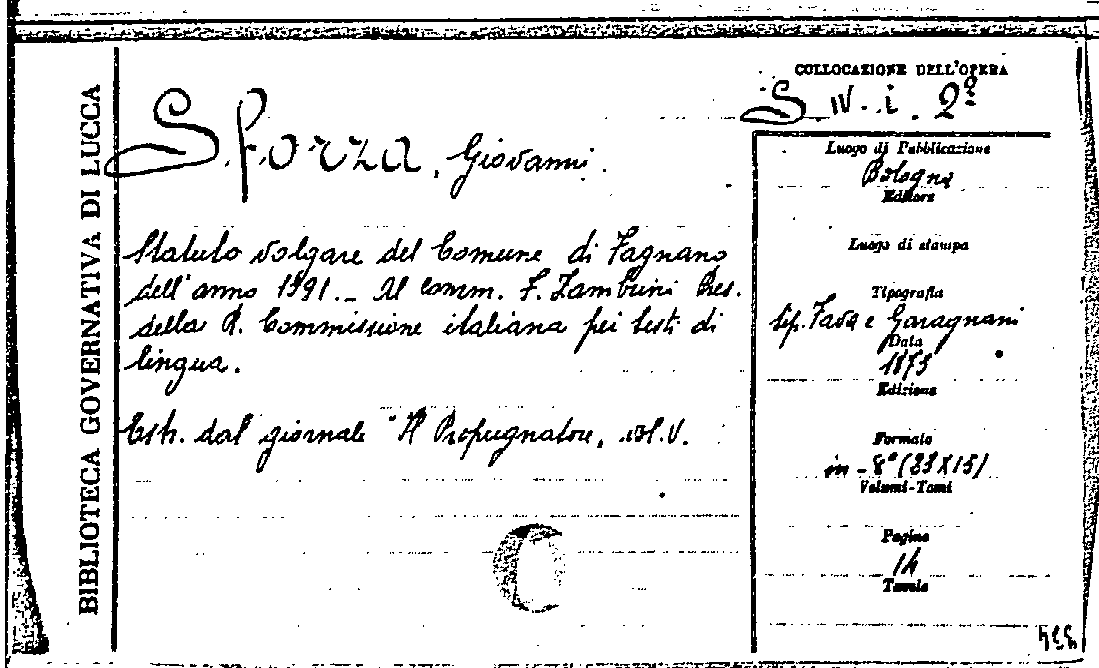 BIBLIOTECA GOVERNATIVA DI LUCCA
Sforza, Giovanni.
Statuto volgare del Comune di Fagnano
dell'anno 1391. - Al comm. F. Zambrini Pres.
della R. Commissione italiana pei testi di
lingua.
Estr. dal giornale "Il Propugnatore, vol. V.
COLLOCAZIONE DELL'OPERA
S IV. i. 2º
Luogo di Pubblicazione
Bologna
Editore
Luogo di stampa
Tipografia
tip. Fava e Garagnani
Data
1873
Edizione
Formato
in-8° (23X15)
Volumi-Tomi
Pagine
14
Tavole